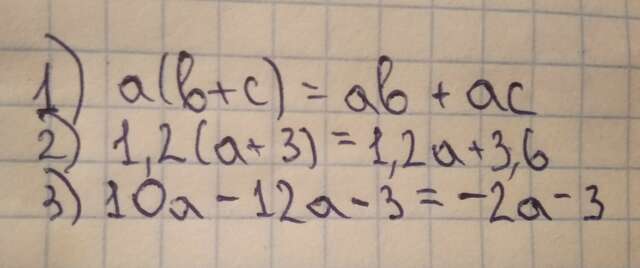 1) a(b+c) = ab + ac
2) 1,2(a+3) = 1,2a+3,6
3) 10a - 12a - 3 = -2a - 3